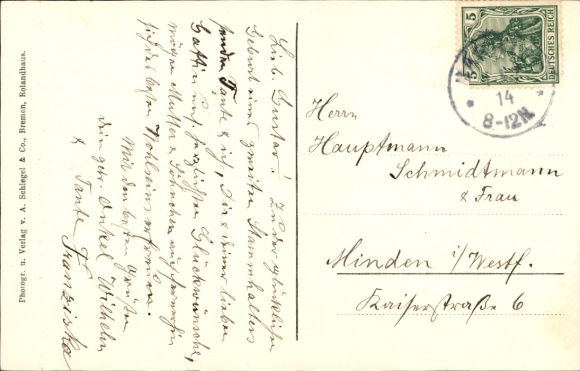 Lieb. Gustav! Zu der glücklichen
Geburt eines zweiten Stammhalters
senden Tante & ich, Dir & Deiner lieben
Gattin die herzlichsten Glückwünsche,
mögen Mutter & Söhnchen auch fernerhin
sich des besten Wohlseins erfreuen.
Mit den besten Grüßen
dein getr. Onkel Wilhelm
& Tante Franziska
Photogr. u. Verlag v. A. Schlegel & Co., Bremen, Rolandhaus.
5 5
DEUTSCHES REICH
14
8-12N.
Herrn
Hauptmann
Schmidtmann
& Frau
Minden i/Westf.
Kaiserstraße 6